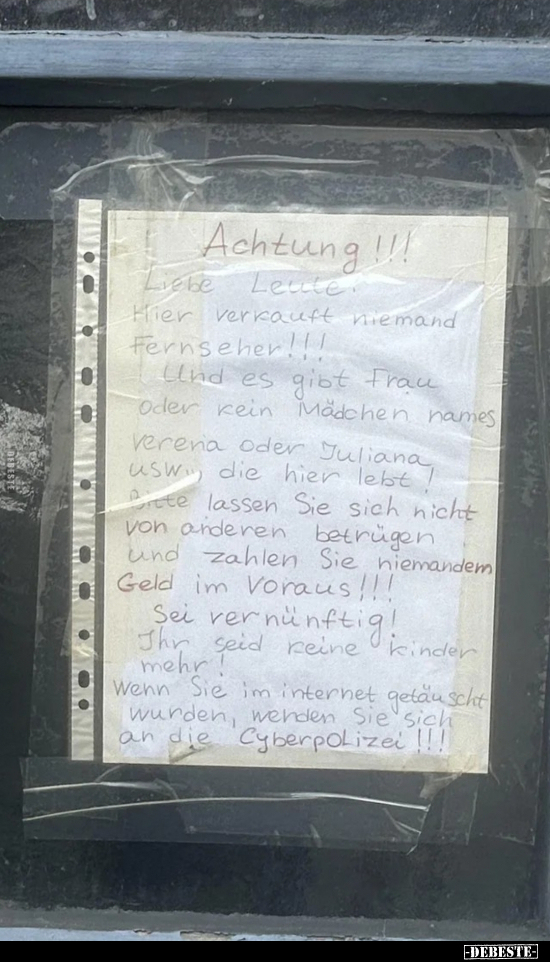 Achtung!!!
Liebe Leute!
Hier verkauft niemand
Fernseher!!!
Und es gibt Frau
oder kein Mädchen names
Verena oder Juliana
usw., die hier lebt!
Bitte lassen Sie sich nicht
von anderen betrügen
und zahlen Sie niemandem
Geld im Voraus!!!
Sei vernünftig!
Ihr seid keine kinder
mehr!
Wenn Sie im internet getäuscht
wurden, wenden Sie sich
an die Cyberpolizei!!!
-DEBESTE-